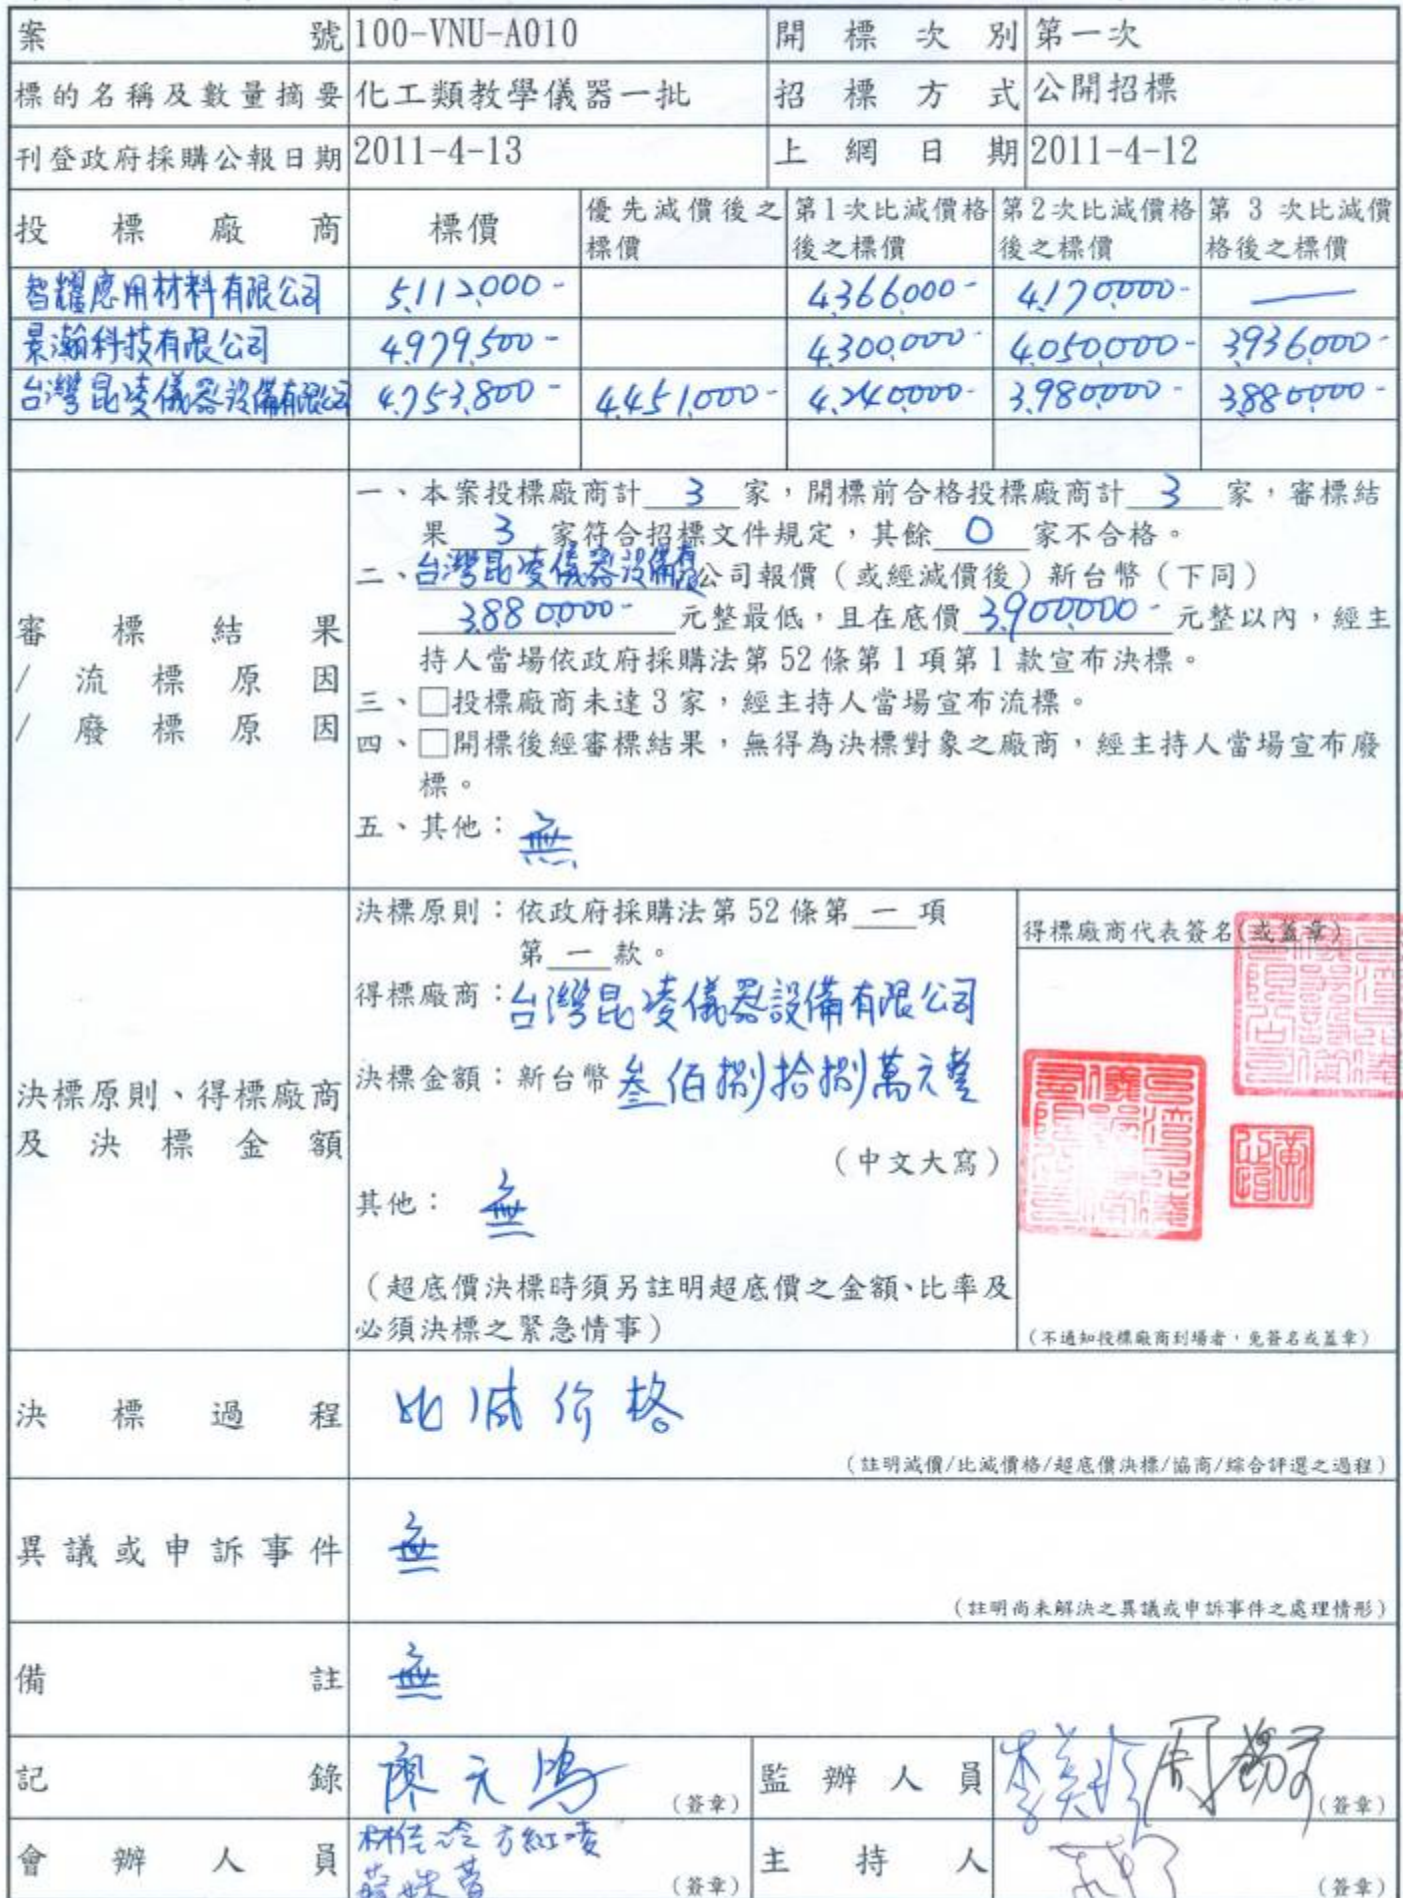 案號 100-VNU-A010 開標次別 第一次
標的名稱及數量摘要 化工類教學儀器一批 招標方式 公開招標
刊登政府採購公報日期 2011-4-13 上網日期 2011-4-12
投標廠商 標價 優先減價後之標價 第1次比減價格後之標價 第2次比減價格後之標價 第 3 次比減價格後之標價
智耀應用材料有限公司 5,112,000- 4,366,000- 4,170,000- —
景瀚科技有限公司 4,979,500- 4,300,000- 4,050,000- 3,936,000-
台灣昆凌儀器設備有限公司 4,753,800- 4,451,000- 4,240,000- 3,980,000- 3,880,000-
審標結果
/流標原因
/廢標原因
一、本案投標廠商計 3 家,開標前合格投標廠商計 3 家,審標結
果 3 家符合招標文件規定,其餘 0 家不合格。
二、台灣昆凌儀器設備有限公司報價(或經減價後)新台幣(下同)
3,880,000- 元整最低,且在底價 3,900,000- 元整以內,經主
持人當場依政府採購法第 52 條第 1 項第 1 款宣布決標。
三、□投標廠商未達 3 家,經主持人當場宣布流標。
四、□開標後經審標結果,無得為決標對象之廠商,經主持人當場宣布廢
標。
五、其他:無
決標原則、得標廠商
及決標金額
決標原則:依政府採購法第 52 條第 一 項
第 一 款。
得標廠商:台灣昆凌儀器設備有限公司
決標金額:新台幣 叁佰捌拾捌萬元整
(中文大寫)
其他:無
(超底價決標時須另註明超底價之金額、比率及
必須決標之緊急情事)
得標廠商代表簽名(或蓋章)
(不通知投標廠商到場者,免簽名或蓋章)
決標過程 比減价格
(註明減價/比減價格/超底價決標/協商/綜合評選之過程)
異議或申訴事件 無
(註明尚未解決之異議或申訴事件之處理情形)
備註 無
記錄 廖元鴻 (簽章) 監辦人員 (簽章)
會辦人員 (簽章) 主持人 (簽章)